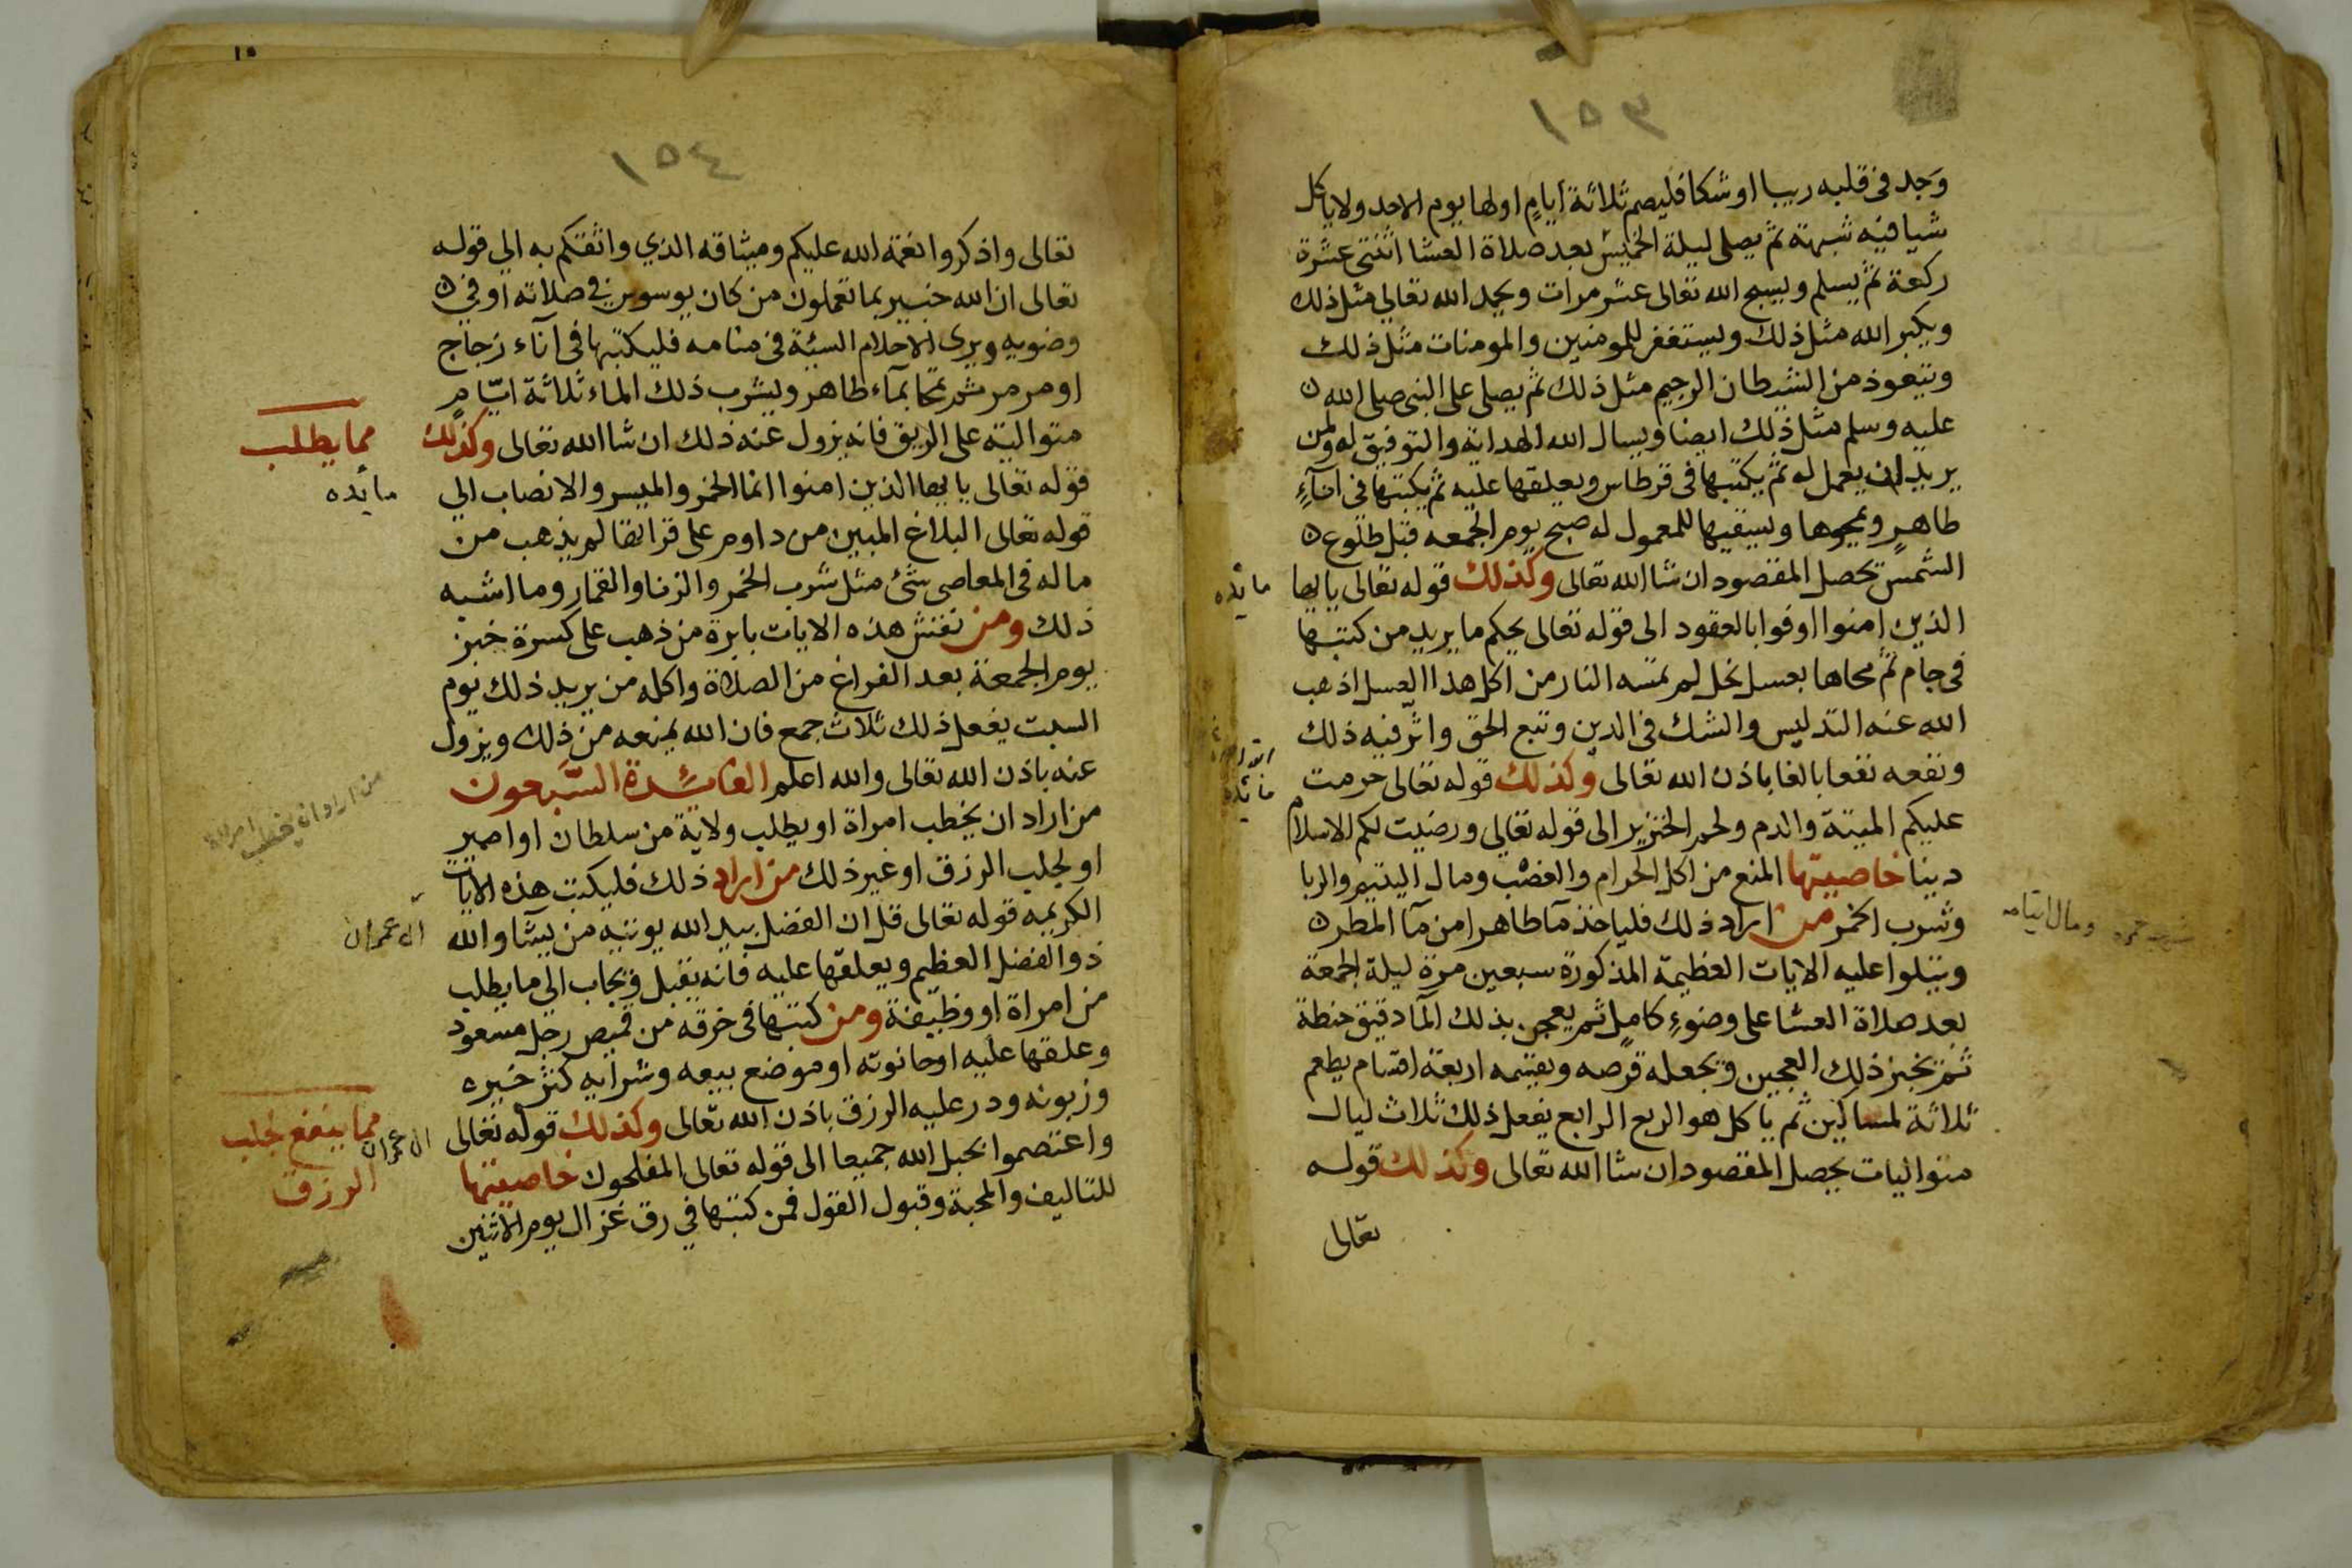 ١٥٣
وجد فى قلبه ريبا او شكا فليصم ثلاثة ايام اولها يوم الاحد ولا ياكل
شيا فيه شبهة ثم يصلى ليلة الخميس بعد صلاة العشا اثنتى عشرة
ركعة ثم يسلم ويسبح الله تعالى عشر مرات ويحمد الله تعالي مثل ذلك
ويكبر الله مثل ذلك ويستغفر للمومنين والمومنات مثل ذلك
ويتعوذ من الشيطان الرجيم مثل ذلك ثم يصلى على النبى صلى الله
عليه وسلم مثل ذلك ايضا ويسال الله الهداية والتوفيق له ولمن
يريد ان يعمل له ثم يكتبها فى قرطاس ويعلقها عليه ثم يكتبها فى اناءٍ
طاهرٍ ويمحوها ويسقيها للمعمول له صبح يوم الجمعه قبل طلوع
الشمس تحصل المقصود ان شا الله تعالى وكذلك قوله تعالى يا ايها
مائده
الذين امنوا اوفوا بالعقود الى قوله تعالى يحكم ما يريد من كتبها
فى جام ثم محاها بعسل نحل لم تمسه النار من اكل هذا العسل اذهب
الله عنه التدليس والشك فى الدين وتبع الحق واثر فيه ذلك
ونفعه نفعا بالغا باذن الله تعالى وكذلك قوله تعالى حرمت
مائده
عليكم الميتة والدم ولحم الخنزير الى قوله تعالي ورضيت لكم الاسلام
دينا خاصيتها المنع من اكل الحرام والغصب ومال اليتيم والربا
وشرب الخمر من اراد ذلك فلياخذ مآ طاهرا من مآ المطر
ومال ايتامه
ويتلوا عليه الايات العظيمة المذكورة سبعين مرة ليلة الجمعة
بعد صلاة العشا على وضوءٍ كاملٍ ثم يعجن بذلك المآ دقيق حنطة
ثم تخبز ذلك العجين ويجعله قرصه ويقسمه اربعة اقسام يطعم
ثلاثة لمساكين ثم ياكل هو الربع الرابع يفعل ذلك ثلاث ليال
متواليات يحصل المقصود ان شا الله تعالى وكذلك قوله
تعالى
١٥٤
تعالى واذكروا نعمة الله عليكم وميثاقه الذي واثقكم به الي قوله
تعالى ان الله خبير بما تعملون من كان يوسوس في صلاته او في
وضويه ويرى الاحلام السيئة فى منامه فليكتبها فى آناء زجاج
او مرمر ثم يمحا بمآء طاهر ويشرب ذلك الماء ثلاثة ايّامٍ
متوالية على الريق فانه يزول عنه ذلك ان شا الله تعالى وكذلك
مما يطلب
مائده
قوله تعالى يا ايها الذين امنوا انما الخمر والميسر والانصاب الي
قوله تعالى البلاغ المبين من داوم على قراتها لم يذهب من
ماله فى المعاصى شئ مثل شرب الخمر والزنا والقمار وما اشبه
ذلك ومن نقش هذه الايات بابرة من ذهب على كسرة خبز
يوم الجمعة بعد الفراغ من الصلاة واكله من يريد ذلك يوم
السبت يفعل ذلك ثلاث جمع فان الله يمنعه من ذلك ويزول
عنه باذن الله تعالى والله اعلم الفائدة السّبعون
من اراد ان يخطب امراة
من اراد ان يخطب امراة او يطلب ولاية من سلطان او امير
او لجلب الرزق او غير ذلك من اراد ذلك فليكتب هذه الايات
الكريمه قوله تعالى قل ان الفضل بيد الله يوتيه من يشآ والله
ال عمران
ذو الفضل العظيم ويعلقها عليه فانه يقبل ويجاب الي ما يطلب
من امراة او وظيفة ومن كتبها فى خرقه من قميص رجل مسعود
وعلقها عليه او حانوته او موضع بيعه وشرايه كثر خيره
وزبونه ودر عليه الرزق باذن الله تعالى وكذلك قوله تعالى
مما ينفع لجلب
الرزق
ال عمران
واعتصموا بحبل الله جميعا الى قوله تعالى المفلحون خاصيتها
للتاليف والمحبة وقبول القول فمن كتبها في رق غزال يوم الاثنين